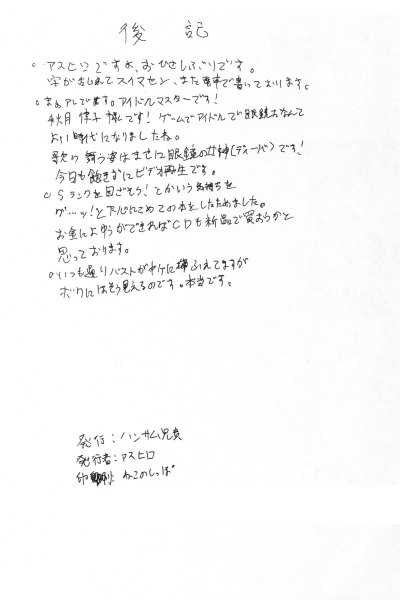 後記
○アスヒロですよ、おひさしぶりです。
字が乱れてスイマセン、また電車で書いております。
○まぁアレでます。アイドルマスターです!
秋月律子嬢です!ゲームでアイドルで眼鏡っなんて
よい時代になりましたね。
歌い舞う姿はまさに眼鏡の女神(ディーバ)です!
今日も飽きずにビデオ再生です。
○Sランクを目ざそう!とかいう気持ちを
グ…ッ!と下心にこめてこの本をしたためました。
お金によゆうができればCDも新品で買おうかと
思っております。
○いつも通りバストがヤケにふえてますが
ボクにはそう見えるのです。本当です。
発行:ハンサム兄弟
発行者:アスヒロ
印刷:ねこのしっぽ